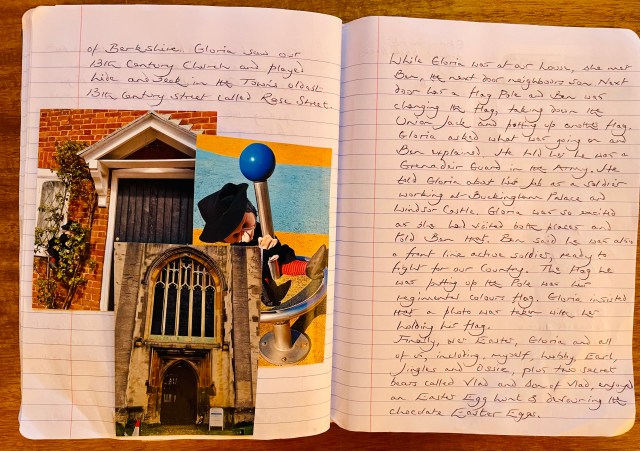 of Berkshire. Gloria saw our
13th Century Church and played
hide and seek in the Town's oldest
13th Century street called Rose Street.
While Gloria was at our house, she met
Ben, the next door neighbours son. Next
door has a Flag Pole and Ben was
changing the Flag, taking down the
Union Jack and putting up another Flag.
Gloria asked what was going on and
Ben explained. He told her he was a
Grenadeir Guard in the Army. He
told Gloria about his Job as a soldier
working at Buckingham Palace and
Windsor Castle. Gloria was so excited
as she had visited both places and
told Ben that. Ben said he was also
a front line active soldier, ready to
fight for our Country. The Flag he
was putting up the Pole was his
regimental colours flag. Gloria insisted
that a photo was taken with her
holding his flag.
Finally, we Easter, Gloria and all
of us, including, myself, Earl,
Jingles and Ossie, plus two secret
bears called Vlad and Son of Vlad, enjoyed
an Easter Egg hunt & devouring the
chocolate Easter Eggs.